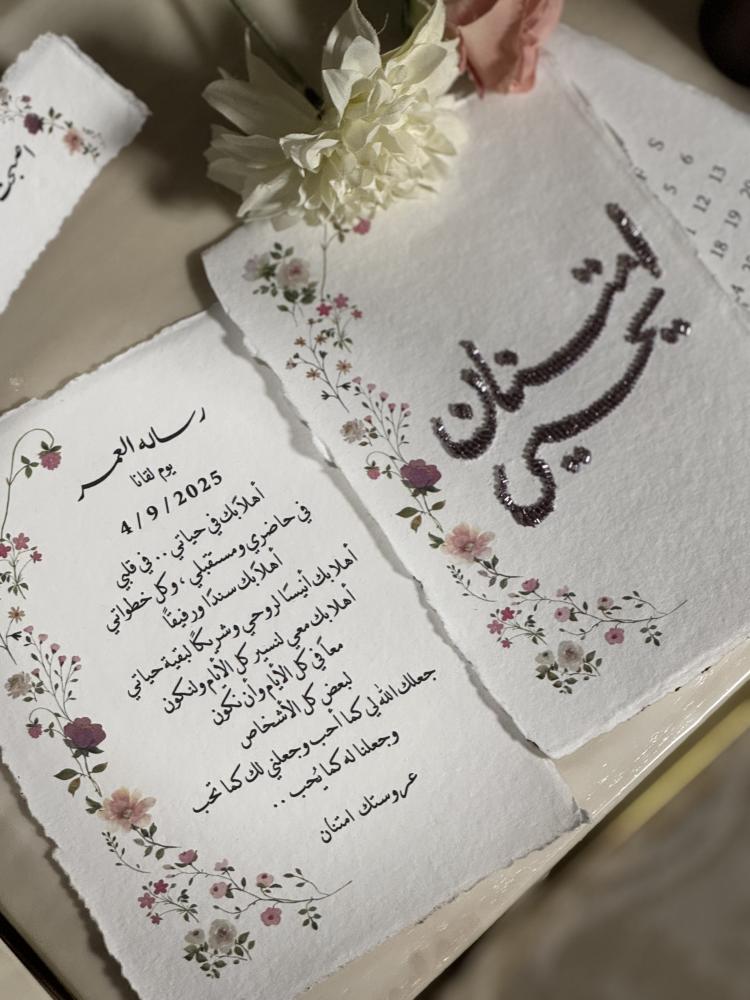 رسالة العمر
يوم لقانا
4/9/2025
أهلاً بك في حياتي .. في قلبي
في حاضري ومستقبلي ، وكل خطواتي
أهلاً بك سندًا ورفيقًا
أهلا بك أنيسًا لروحي وشريكًا لبقية حياتي
أهلا بك معي لنسير كل الأيام ولنكون
معاً في كل الأيام وأن نكون
لبعض كل الأشخاص
جعلك الله لي كما أحب وجعلني لك كما تحب
وجعلنا له كما يُحب ..
عروستك امتنان
امتنان
يحيى
S
5 6
12 13
18 19